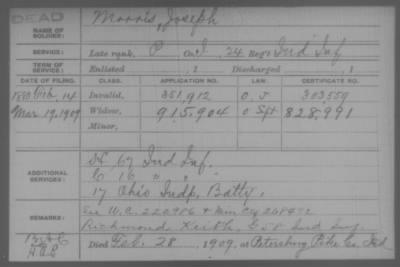 DEAD
NAME OF SOLDIER: Morris, Joseph
SERVICE: Late rank, P Co. I, 24 Reg't Ind Inf
TERM OF SERVICE: Enlisted , 1 Discharged , 1
DATE OF FILING. CLASS. APPLICATION NO. LAW. CERTIFICATE NO.
1880 Feb. 14 Invalid, 351,912 O. L 303,559
Mar 19, 1909 Widow, 915,904 O Spt 828,991
Minor,
ADDITIONAL SERVICES: 67 Ind Inf.
C 16 " "
17 Ohio Indp, Batty.
REMARKS: See W.C. 220986 +
Richmond Keith, 58 Ind Inf
Died Feb. 28, 1909, at Petersburg Pike Co. Ind